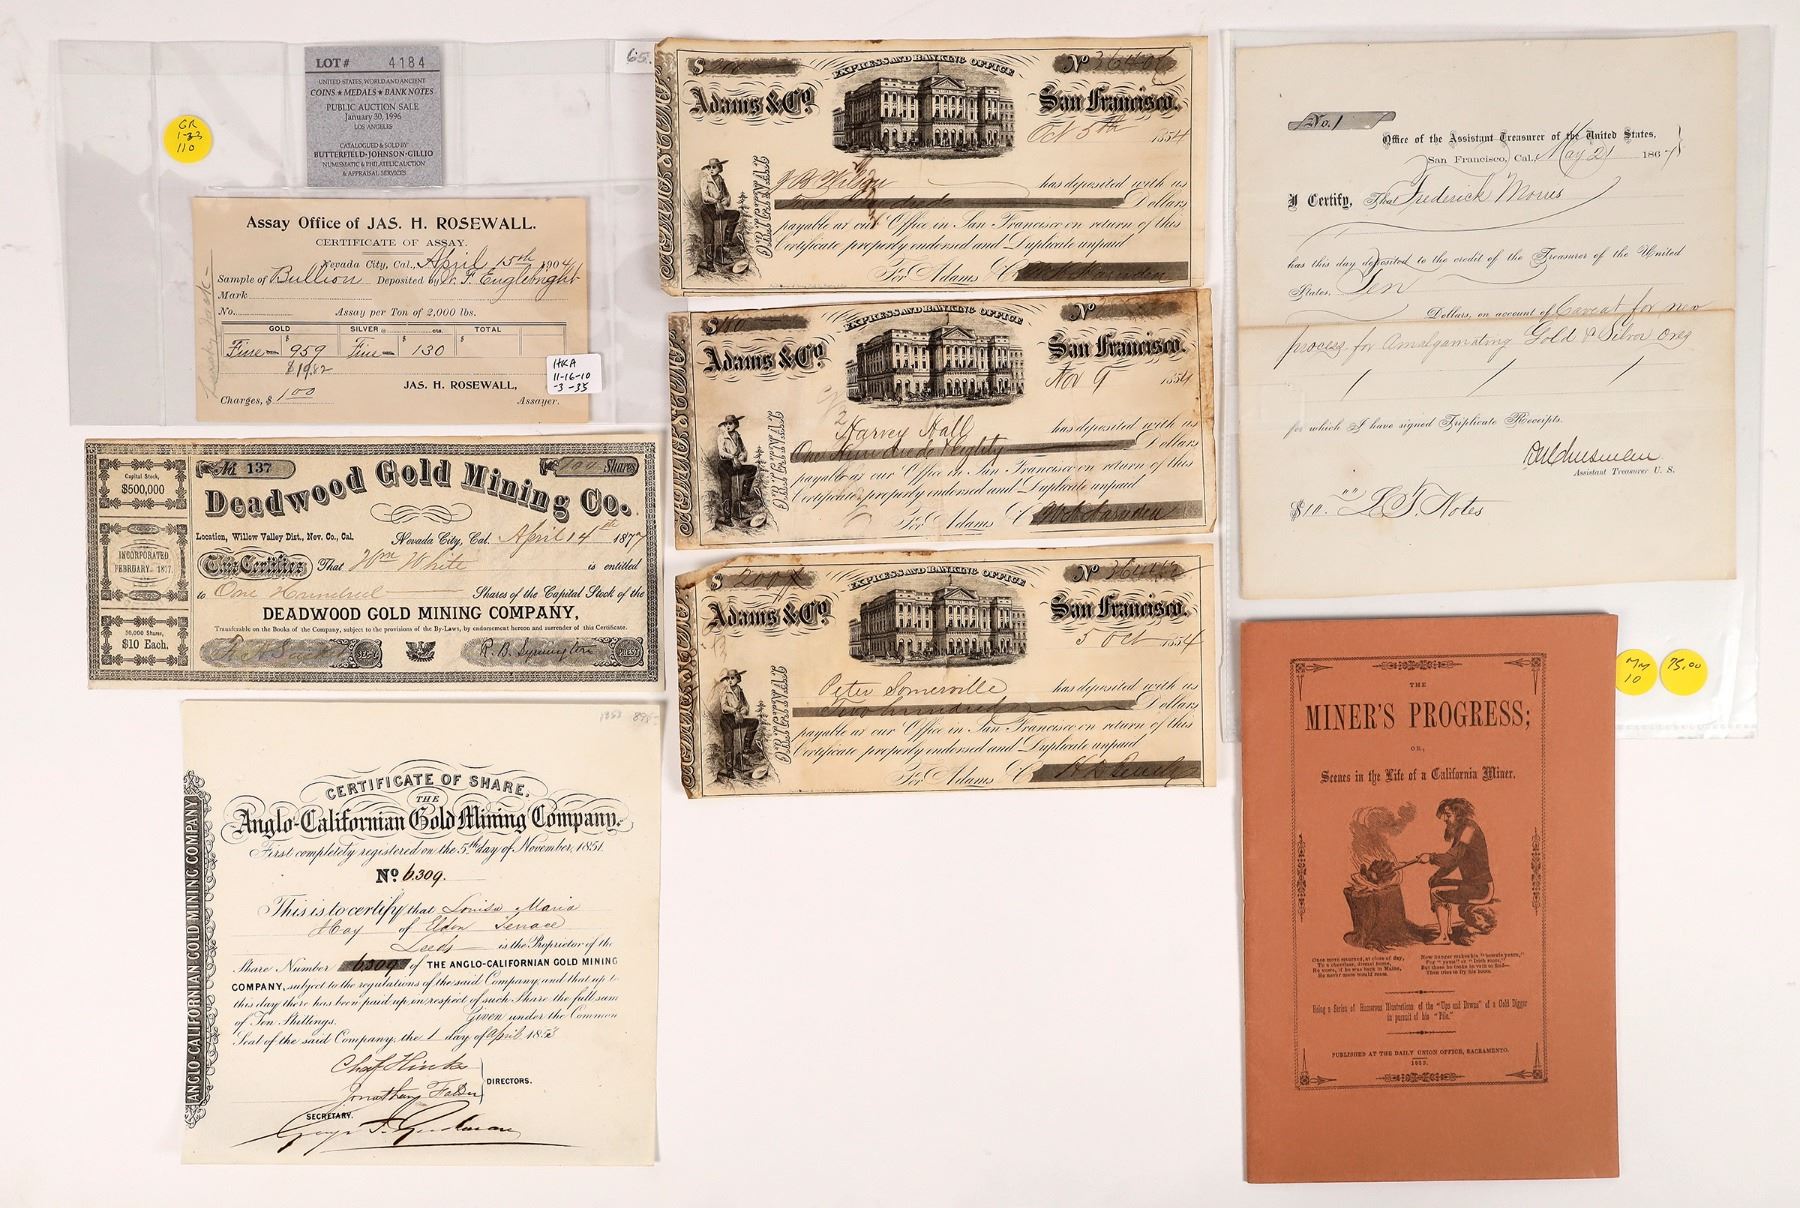 LOT # 4184
UNITED STATES, WORLD AND ANCIENT
COINS ★ MEDALS ★ BANK NOTES
PUBLIC AUCTION SALE
January 30, 1996
LOS ANGELES
CATALOGUED & SOLD BY
BUTTERFIELD-JOHNSON-GILLIO
NUMISMATIC & PHILATELIC AUCTION
& APPRAISAL SERVICES
GR
1-33
110
65.
Assay Office of JAS. H. ROSEWALL.
CERTIFICATE OF ASSAY.
Nevada City, Cal., April 15th 1904
Sample of Bullion Deposited by W. F. Englebright
Mark
No. Assay per Ton of 2,000 lbs.
GOLD SILVER @ ozs. TOTAL
Fine — $ 959 Fine — $ 130 $
$19.82
JAS. H. ROSEWALL,
Charges, $ 1.00 Assayer.
HKA
11-16-10
-3-35
No. 137 100 Shares
Capital Stock,
$500,000
Deadwood Gold Mining Co.
Location, Willow Valley Dist., Nev. Co., Cal. Nevada City, Cal. April 14th 1877
INCORPORATED
FEBRUARY 1877.
This Certifies That Wm White is entitled
to One Hundred Shares of the Capital Stock of the
DEADWOOD GOLD MINING COMPANY,
Transferable on the Books of the Company, subject to the provisions of the By-Laws, by endorsement hereon and surrender of this Certificate.
50,000 Shares,
$10 Each.
SECY R. B. Symington PREST
1853 895-
CERTIFICATE OF SHARE.
THE
Anglo-Californian Gold Mining Company.
First completely registered on the 5th day of November, 1851.
No 6.309.
This is to certify that Louisa Maria
Hay of Eldon Terrace
Leeds — is the Proprietor of the
Share Number 6309 of THE ANGLO-CALIFORNIAN GOLD MINING
COMPANY, subject to the regulations of the said Company, and that up to
this day there has been paid up, in respect of such Share the full sum
of Ten Shillings. Given under the Common
Seal of the said Company, the 1 day of April 1853
DIRECTORS.
SECRETARY.
ANGLO-CALIFORNIAN GOLD MINING COMPANY
$ 200 EXPRESS AND BANKING OFFICE No
Adams & Co. San Francisco.
Oct 5th 1854
ORIGINAL
J B Wilson has deposited with us
Two Hundred Dollars
payable at our Office in San Francisco on return of this
Certificate properly endorsed and Duplicate unpaid
For Adams & Co
$180 EXPRESS AND BANKING OFFICE No
Adams & Co. San Francisco.
Nov 9 1854
ORIGINAL
Harvey Hall has deposited with us
One Hundred Eighty Dollars
payable at our Office in San Francisco on return of this
Certificate properly endorsed and Duplicate unpaid
For Adams & Co
$ 200 EXPRESS AND BANKING OFFICE No
Adams & Co. San Francisco.
5 Oct 1854
ORIGINAL
Peter Somerville has deposited with us
Two hundred Dollars
payable at our Office in San Francisco on return of this
Certificate properly endorsed and Duplicate unpaid
For Adams & Co
No. 1
Office of the Assistant Treasurer of the United States,
San Francisco, Cal. May 21 1864
I Certify, That Frederick Morris
has this day deposited to the credit of the Treasurer of the United
States, Ten
Dollars, on account of Caveat for new
process for Amalgamating Gold & Silver ores
for which I have signed Triplicate Receipts.
Assistant Treasurer U. S.
$10. L. T. Notes
MM
10
75.00
THE
MINER'S PROGRESS;
OR,
Scenes in the Life of a California Miner.
Once more returned, at close of day,
To a cheerless, dismal home,
He vows, if he was back in Maine,
He never more would roam.
Now hunger makes his "bowels yearn,"
For "yams" or "Irish roots,"
But these he looks in vain to find—
Then tries to fry his boots.
Being a Series of Humorous Illustrations of the "Ups and Downs" of a Gold Digger
in pursuit of his "Pile."
PUBLISHED AT THE DAILY UNION OFFICE, SACRAMENTO.
1853.